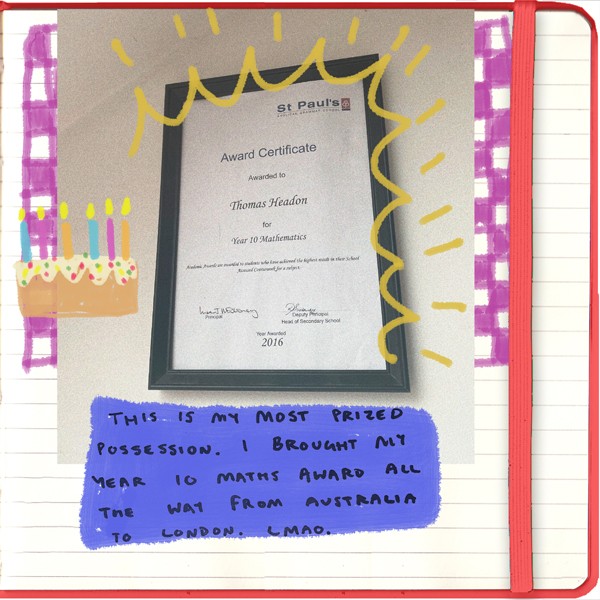 St Paul's
ANGLICAN GRAMMAR SCHOOL
Award Certificate
Awarded to
Thomas Headon
for
Year 10 Mathematics
Academic Awards are awarded to students who have achieved the highest results in their School
Assessed Coursework for a subject.
Principal
Deputy Principal
Head of Secondary School
Year Awarded
2016
THIS IS MY MOST PRIZED
POSSESSION. I BROUGHT MY
YEAR 10 MATHS AWARD ALL
THE WAY FROM AUSTRALIA
TO LONDON. LMAO.